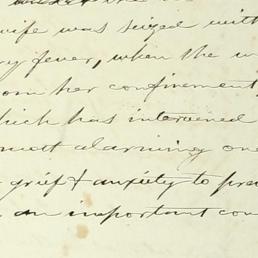 wife was seized with
fever, when the
her confinement
which has intervened
most alarming one
grief & anxiety to
an important